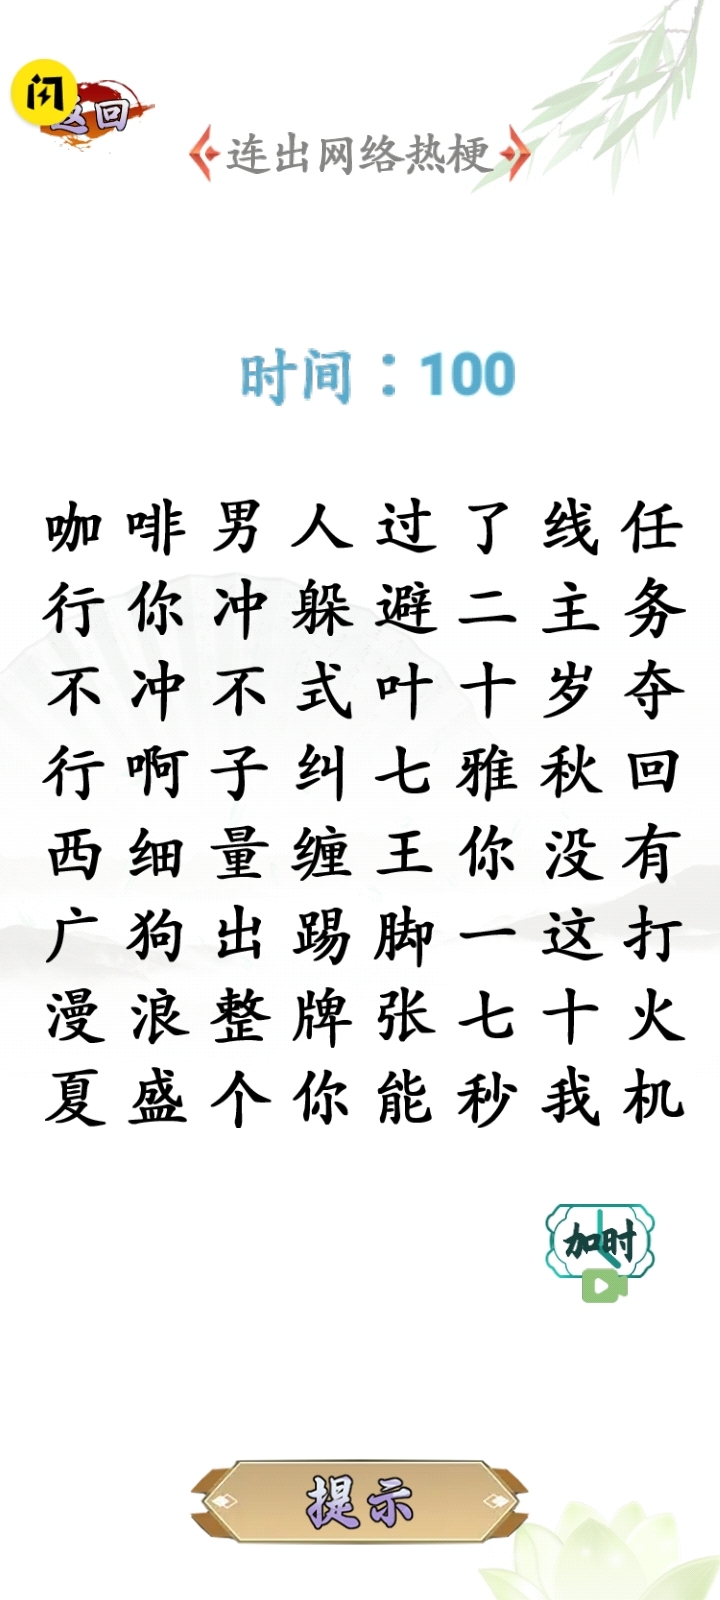 闪
返回
连出网络热梗
时间：100
咖啡男人过了线任
行你冲躲避二主务
不冲不式叶十岁夺
行啊子纠七雅秋回
西细量缠王你没有
广狗出踢脚一这打
漫浪整牌张七十火
夏盛个你能秒我机
加时
提示